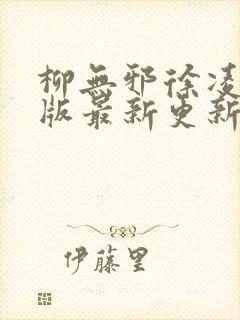 柳無邪徐凌
版最新更新
伊藤里